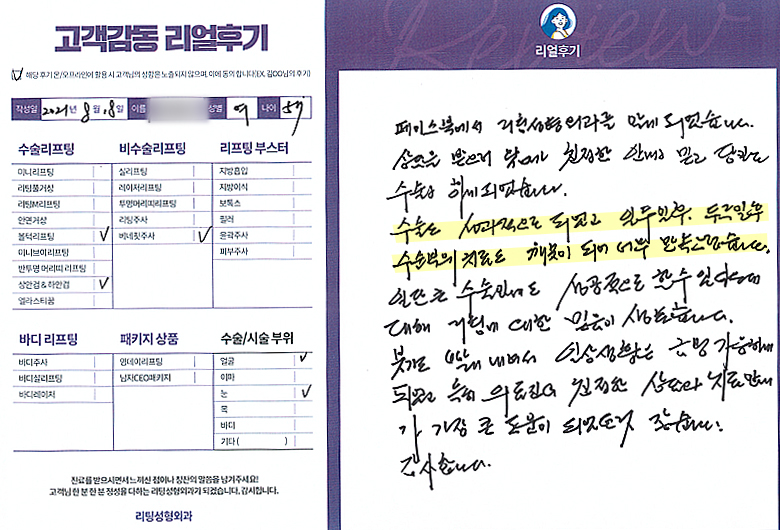 고객감동 리얼후기
해당 후기 온/오프라인에 활용 시 고객님의 성함은 노출되지 않으며, 이에 동의 합니다(EX. 김OO님의 후기)
작성일 2021년 8월 18일 이름 성별 여 나이
수술리프팅 비수술리프팅 리프팅 부스터
미니리프팅 실리프팅 지방흡입
리팅풀거상 레이저리프팅 지방이식
리팅M리프팅 투명머리띠리프팅 보톡스
안면거상 리팅주사 필러
볼턱리프팅 ✓ 비네핏주사 ✓ 윤곽주사
미니브이리프팅 피부주사
반투명 머리띠 리프팅
상안검 & 하안검 ✓
엘라스티꿈
바디 리프팅 패키지 상품 수술/시술 부위
바디주사 원데이리프팅 얼굴 ✓
바디실리프팅 남자CEO패키지 이마
바디레이저 눈 ✓
목
바디
기타 ( )
진료를 받으시면서 느끼신 점이나 칭찬의 말씀을 남겨주세요!
고객님 한 분 한 분 정성을 다하는 리팅성형외과가 되겠습니다. 감사합니다.
리팅성형외과
Review
리얼후기
페이스북에서 리팅성형외과를 알게 되었습니다.
상담을 받으러 왔는데 친절한 안내를 믿고 당일
수술을 하게 되었습니다.
수술은 성공적으로 되었고 일주일후, 두주일후
수술부위 치료도 깨끗이 되어 너무 만족스럽습니다.
일단 큰 수술인데도 성공적으로 할 수 있다는데
대해 리팅에 대한 믿음이 생겼습니다.
붓기도 빨리 내려서 일상생활은 금방 가능하게
되었고 특히 의료진의 친절한 상담과 치료안내
가 가장 큰 도움이 되었던거 같습니다.
감사합니다.